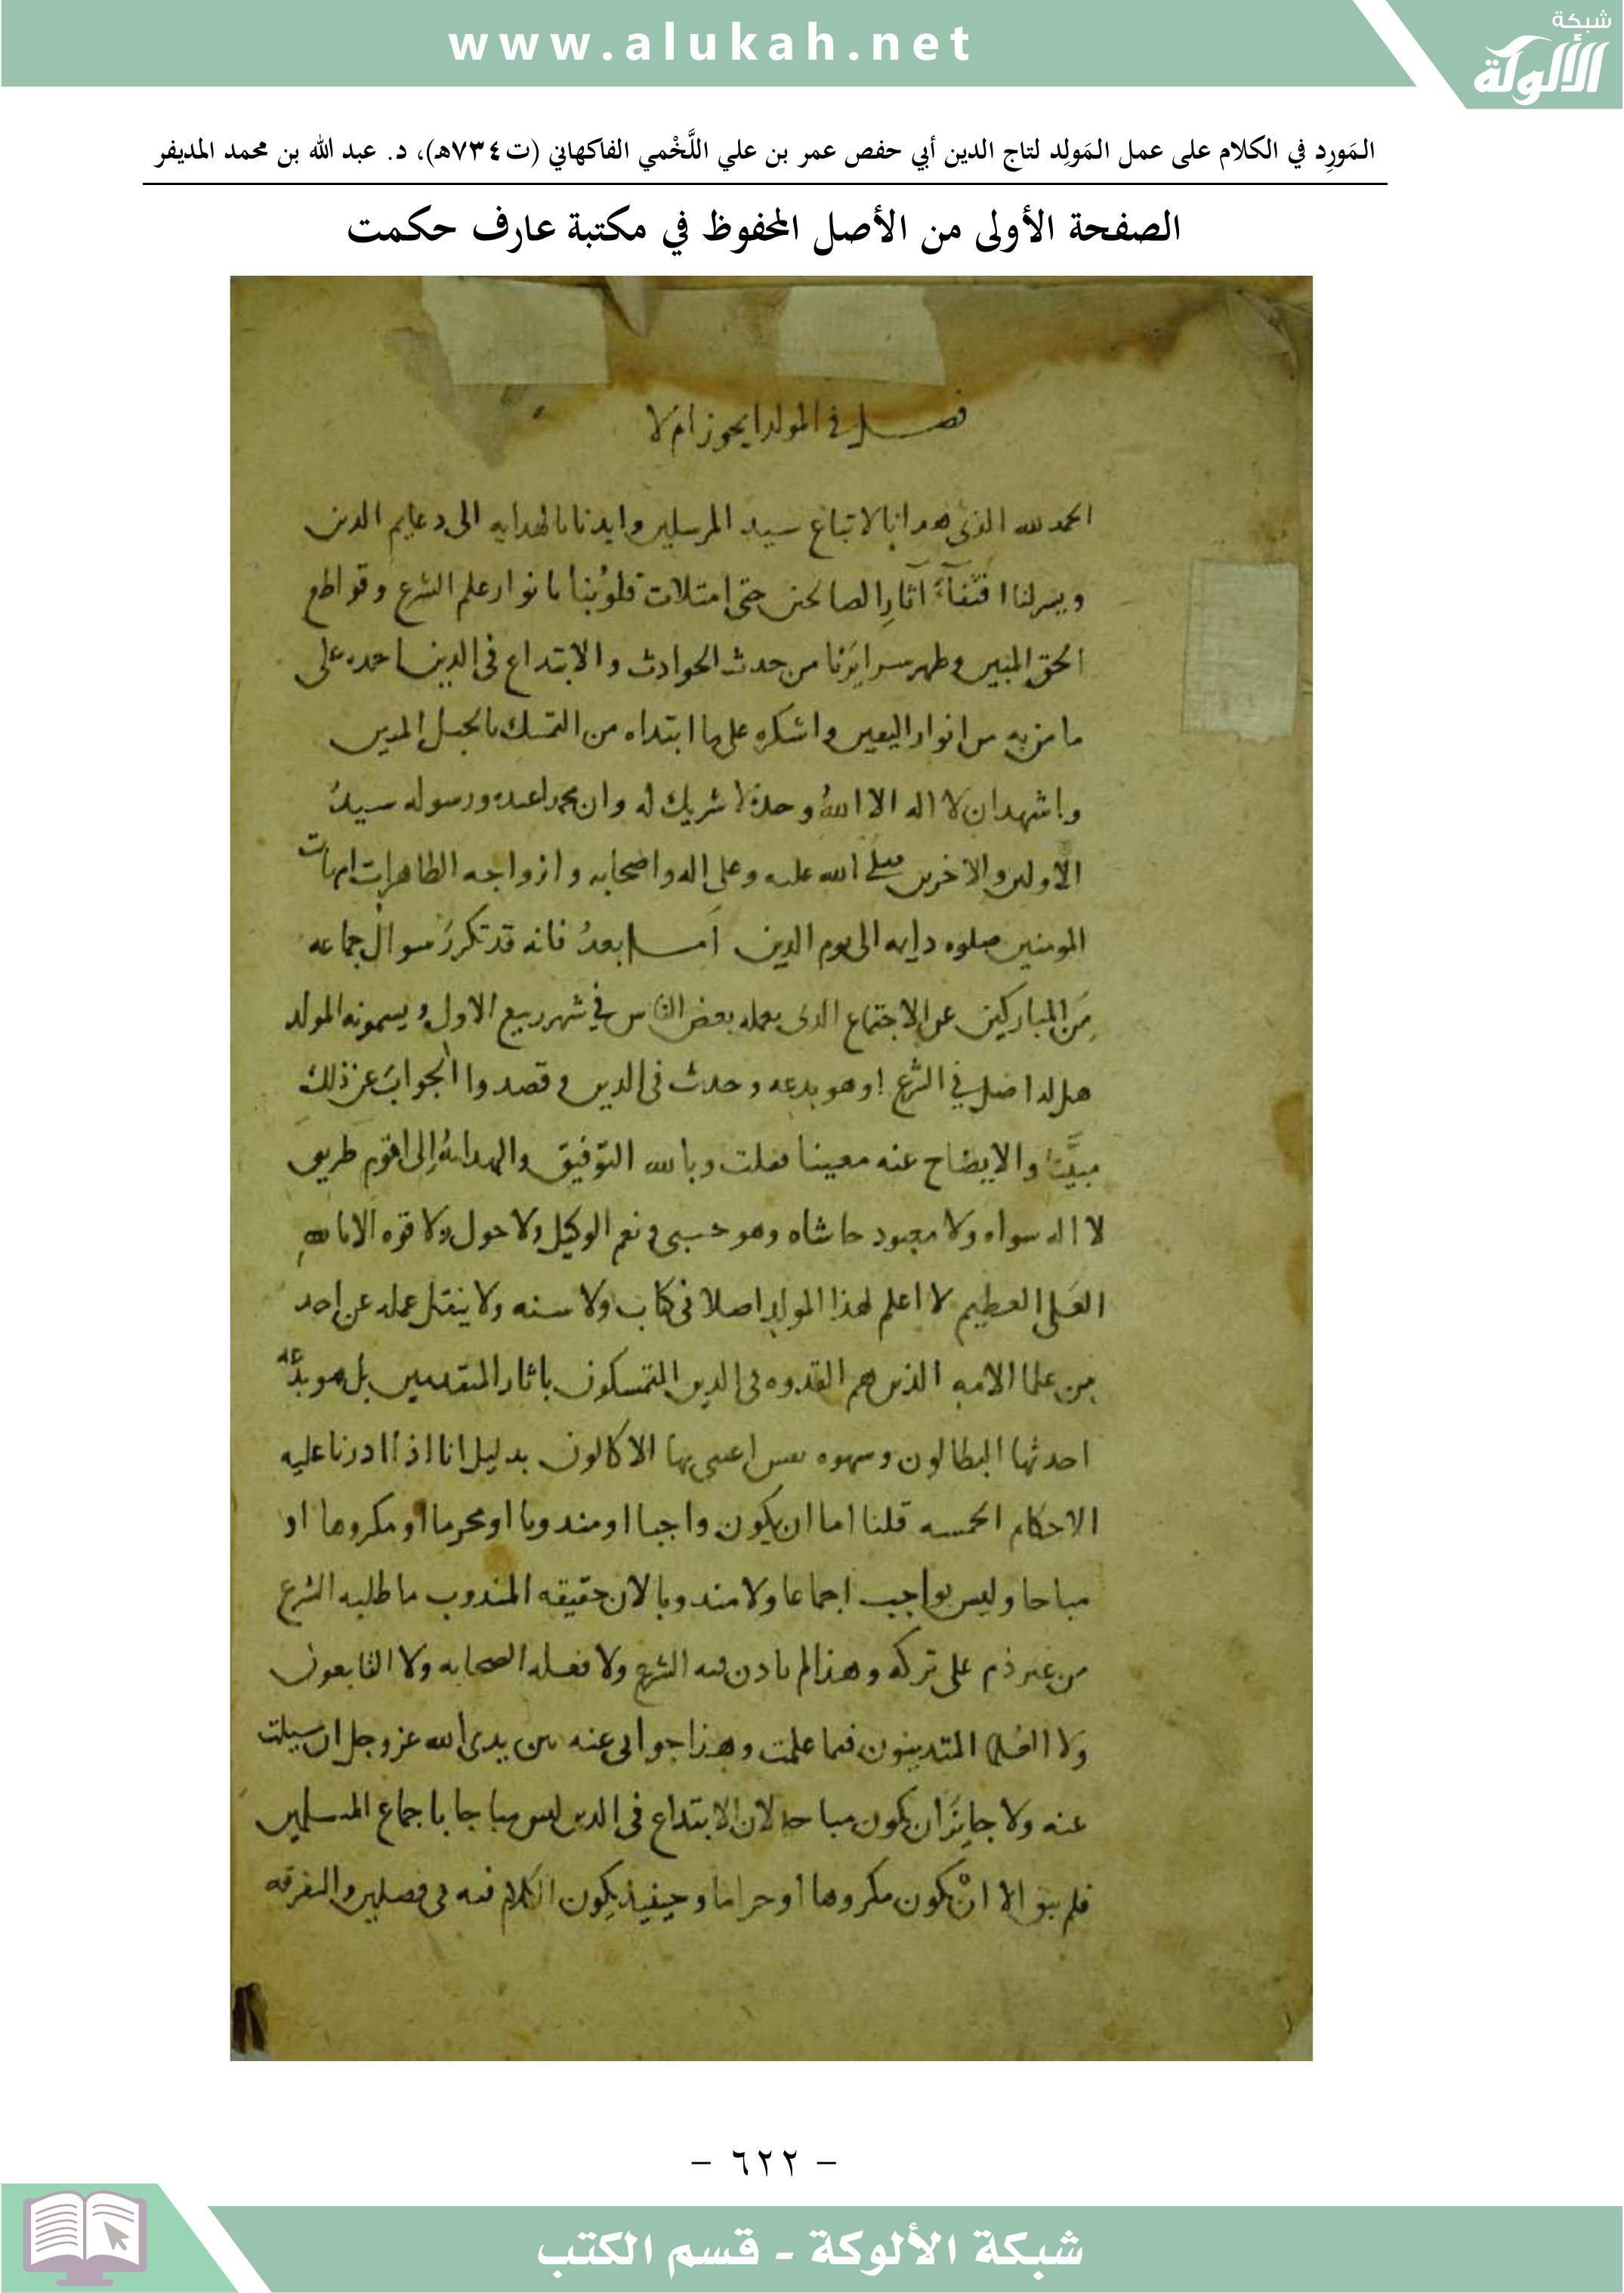 www.alukah.net
شبكة
الألوكة
المَورِد في الكلام على عمل المَولِد لتاج الدين أبي حفص عمر بن علي اللَّخْمي الفاكهاني (ت٧٣٤هـ)، د. عبد الله بن محمد المديفر
الصفحة الأولى من الأصل المحفوظ في مكتبة عارف حكمت
فصل في المولد ايجوز ام لا
الحمد لله الذي هدانا لاتباع سيد المرسلين وايدنا بالهدايه الى دعايم الدين
ويسر لنا اقتفآء آثار الصالحين حتى امتلات قلوبُنا بانوار علم الشرع وقواطع
الحق المبين وطهر سرايرَنا من حدث الحوادث والابتداع في الدين احمده على
ما من به من انوار اليقين واشكره على ما ابتداه من التمسك بالحبل المتين
واشهد ان لا اله الا اللهُ وحدهُ لا شريك له وان محمدا عبده ورسوله سيدُ
الاولين والاخرين صلى الله عليه وعلى اله واصحابه وازواجه الطاهرات امهات
المومنين صلوه دايمه الى يوم الدين اما بعدُ فانه قد تكررَ سوالُ جماعه
مِنَ المباركين عن الاجتماع الذي يعمله بعض الناس في شهر ربيع الاول ويسمونه المولد
هل له اصل في الشرع او هو بدعه وحدث في الدين وقصدوا الجوابَ عن ذلك
مبيَّنا والايضاح عنه معينا فقلت وبالله التوفيق والهدايهُ الى اقوم طريق
لا اله سواه ولا معبود حاشاه وهو حسبي ونعم الوكيل ولا حول ولا قوه الا بالله
العَلي العظيم لا اعلم لهذا المولد اصلا في كتاب ولا سنه ولا ينقل عمله عن احد
من علما الامه الذين هم القدوه في الدين المتمسكون باثار المتقدمين بل هو بدعه
احدثها البطالون وشهوه نفس اعتنى بها الاكالون بدليل انا اذا ادرنا عليه
الاحكام الخمسه قلنا اما ان يكون واجبا او مندوبا او محرما او مكروها او
مباحا وليس بواجب اجماعا ولا مندوبا لان حقيقه المندوب ما طلبه الشرع
من غير ذم على تركه وهذا لم ياذن فيه الشرع ولا فعله الصحابه ولا التابعون
ولا العلما المتدينون فيما علمت وهذا جوابي عنه بين يدي الله عز وجل ان سيلت
عنه ولا جايزَ ان يكون مباحا لان الابتداع في الدين ليس مباحا باجماع المسلمين
فلم يبق الا انْ يكون مكروها او حراما وحينيذ يكون الكلام فيه في فصلين والتفرقه
- ٦٢٢ -
شبكة الألوكة - قسم الكتب